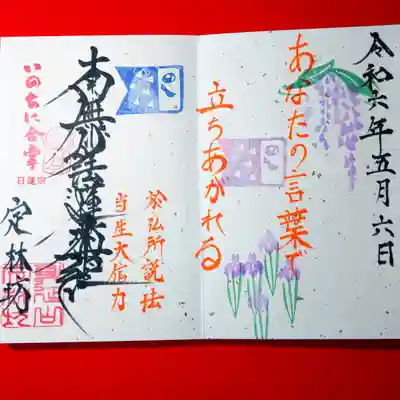 令和六年五月六日
あなたの言葉で
立ちあがれる
於仏所説法
当生大信力
南無妙法蓮華経
いのちに合掌
日蓮宗
定林坊